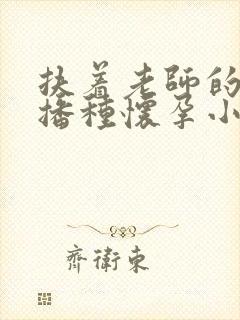 扶着老師的
播種懷孕小
齊衛東